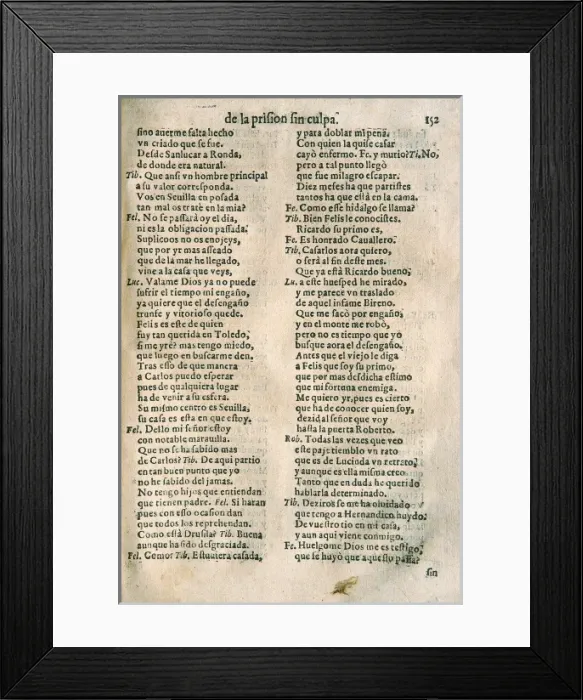 de la prision sin culpa. 152
sino auerme falta hecho
vn criado que se fue.
Desde Sanlucar a Ronda,
de donde era natural.
Tib. Que ansi vn hombre principal
a su valor corresponda.
Vos en Seuilla en posada
tan mal os tratè en la mia?
Fel. No se passarà oy el dia,
ni es la obligacion passada.
Suplicoos no os enojeys,
que por yr mas asseado
que de la mar he llegado,
vine a la casa que veys,
Luc. Valame Dios ya no puede
sufrir el tiempo mi engaño,
ya quiere que el desengaño
triunfe y vitorioso quede.
Felis es este de quien
fuy tan querida en Toledo,
si me yrè? mas tengo miedo,
que luego en buscarme den.
Tras esso de que manera
a Carlos puedo esperar
pues de qualquiera lugar
ha de venir a su esfera.
Su mismo centro es Seuilla,
su casa es esta en que estoy.
Fel. Dello mi señor estoy
con notable marauilla.
Que no se ha sabido mas
de Carlos? Tib. De aqui partio
en tan buen punto que yo
no he sabido del jamas.
No tengo hijos que entiendan
que tienen padre. Fel. Si haran
pues con esso ocasion dan
que todos los reprehendan.
Como està Drusila? Tib. Buena
aunque ha sido desgraciada.
Fel. Como? Tib. Estuuiera casada,
y para doblar mi pena.
Con quien la quise casar
cayò enfermo. Fe. y murio? Ti. No,
pero a tal punto llegò
que fue milagro escapar.
Diez meses ha que partistes
tantos ha que està en la cama.
Fe. Como esse hidalgo se llama?
Tib. Bien Felis le conocistes.
Ricardo su primo es,
Fe. Es honrado Cauallero.
Tib. Casarlos aora quiero,
o serà al fin deste mes.
Que ya està Ricardo bueno,
Lu. a este huesped he mirado,
y me parece vn traslado
de aquel infame Bireno.
Que me sacò por engaño,
y en el monte me robò,
pero no es tiempo que yo
busque aora el desengaño.
Antes que el viejo le diga
a Felis que soy su primo,
que por mas desdicha estimo
que mi fortuna enemiga.
Me quiero yr, pues es cierto
que ha de conocer quien soy,
dezid al señor que voy
hasta la puerta Roberto.
Rob. Todas las vezes que veo
este paje tiemblo vn rato
que es de Lucinda vn retrato,
y aunque es ella misma creo.
Tanto que en duda he querido
hablarla determinado.
Tib. Deziros se me ha oluidado
que tengo a Hernandico huydo.
De vuestro tio en mi casa,
y aun aqui viene conmigo.
Fe. Huelgome Dios me es testigo,
que se huyò que aquesto passa?
sin